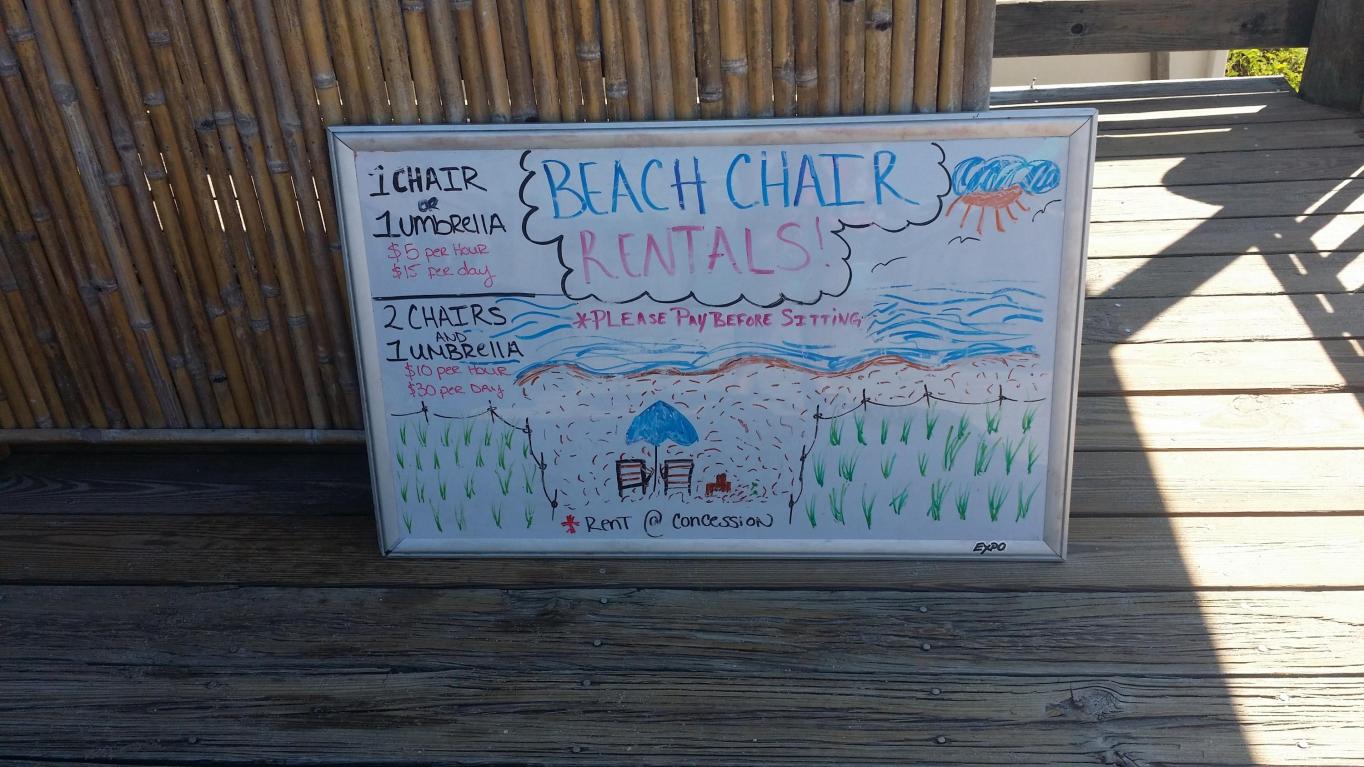 1 CHAIR
OR
1 UmbRellA
$5 per HouR
$15 per day
2 CHAIRS
AND
1 UMBRellA
$10 per HouR
$30 per DAy
BEACH CHAIR
RENTALS!
*PLEASE PAY BEFORE SITTING
* RENT @ CONCESSION
EXPO